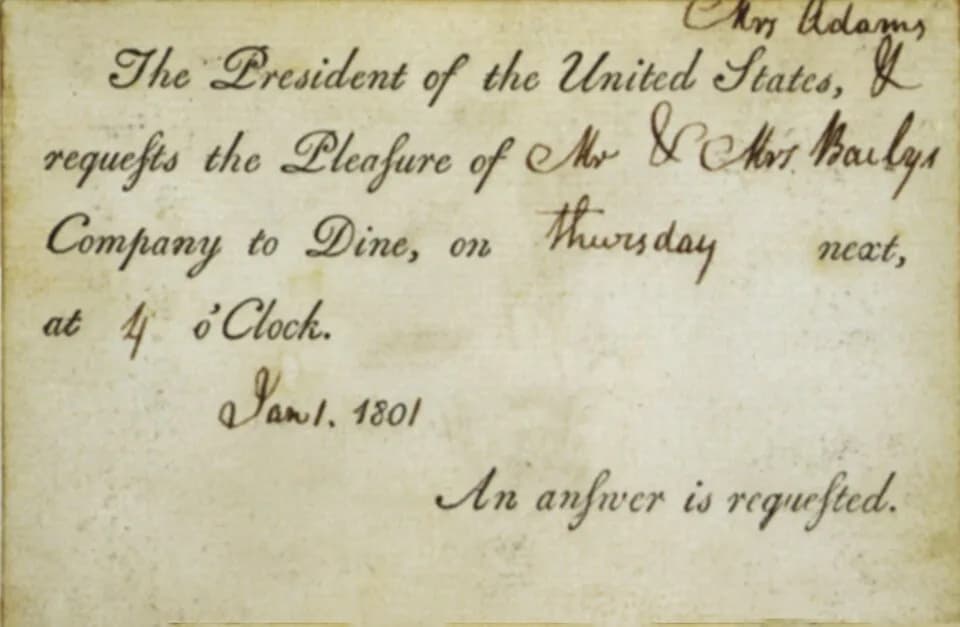 Mrs Adams
The President of the United States, &
requeſts the Pleaſure of Mr & Mrs. Bailys
Company to Dine, on thursday next,
at 4 o'Clock.
Jan 1. 1801
An anſwer is requeſted.